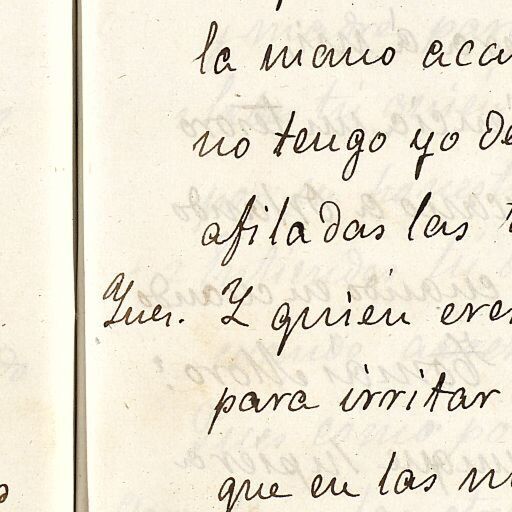 la mano aca
no tengo yo de
afiladas las
Yues. Y quien eres
para irritar
que en las